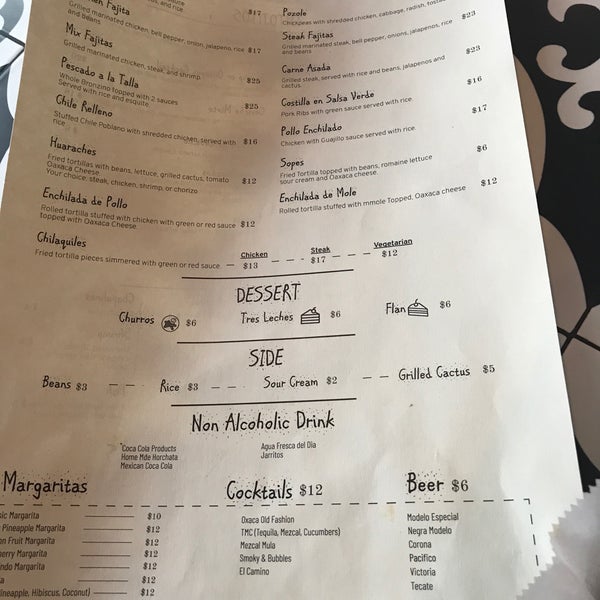 Fajita
Grilled marinated chicken, bell pepper, onion, jalapeno, rice and beans
$17
Mix Fajitas
Grilled marinated chicken, steak, and shrimp.
$25
Pescado a la Talla
Whole Bronzino topped with 2 sauces
Served with rice and esquite.
$25
Chile Relleno
Stuffed Chile Poblano with shredded chicken, served with rice.
$16
Huaraches
Fried tortillas with beans, lettuce, grilled cactus, tomato
Oaxaca Cheese
Your choice: steak, chicken, shrimp, or chorizo
$12
Enchilada de Pollo
Rolled tortilla stuffed with chicken with green or red sauce
topped with Oaxaca Cheese.
$12
Pozole
Chickpeas with shredded chicken, cabbage, radish,
$17
Steak Fajitas
Grilled marinated steak, bell pepper, onions, jalapenos, rice
and beans
$23
Carne Asada
Grilled steak, served with rice and beans, jalapenos and
cactus.
$23
Costilla en Salsa Verde
Pork Ribs with green sauce served with rice.
$16
Pollo Enchilado
Chicken with Guajillo sauce served with rice.
$17
Sopes
Fried Tortilla topped with beans, romaine lettuce
sour cream and Oaxaca cheese
$6
Enchilada de Mole
Rolled tortilla stuffed with mmole Topped, Oaxaca cheese
$12
Chilaquiles
Fried tortilla pieces simmered with green or red sauce
Chicken $13
Steak $17
Vegetarian $12
DESSERT
Churros $6 Tres Leches $6 Flan $6
SIDE
Beans $3 Rice $3 Sour Cream $2 Grilled Cactus $5
Non Alcoholic Drink
Coca Cola Products
Home Mde Horchata
Mexican Coca Cola
Agua Fresca del Dia
Jarritos
Margaritas
Margarita $10
Pineapple Margarita $12
Fruit Margarita $12
Margarita $12
Margarita $12
$12
Pineapple, Hibiscus, Coconut) $12
Cocktails $12
Oxaca Old Fashion
TMC (Tequila, Mezcal, Cucumbers)
Mezcal Mula
Smoky & Bubbles
El Camino
Beer $6
Modelo Especial
Negra Modelo
Corona
Pacifico
Victoria
Tecate